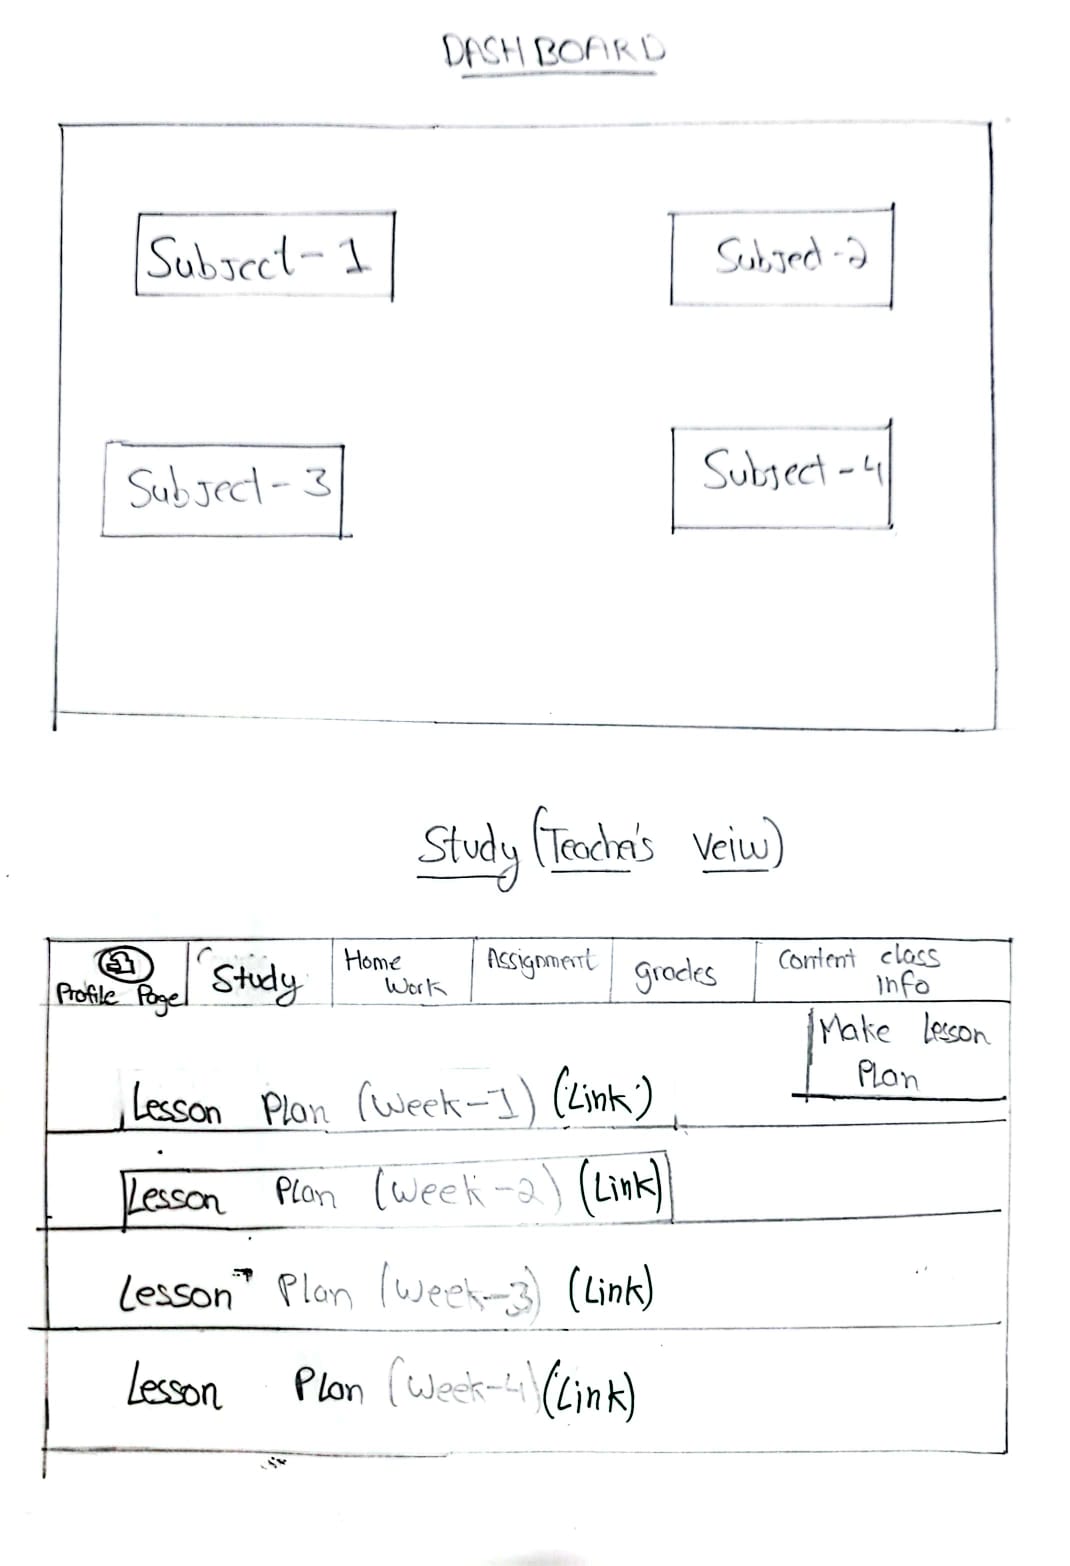 DASHBOARD
Subject-1
Subject-2
Subject-3
Subject-4
Study (Teacher's Veiw)
Profile Page
Study
Home
Work
Assignment
grades
Content class
Info
Make Lesson
Plan
Lesson Plan (Week-1) (Link)
Lesson Plan (Week-2) (Link)
Lesson Plan (Week-3) (Link)
Lesson Plan (Week-4) (Link)